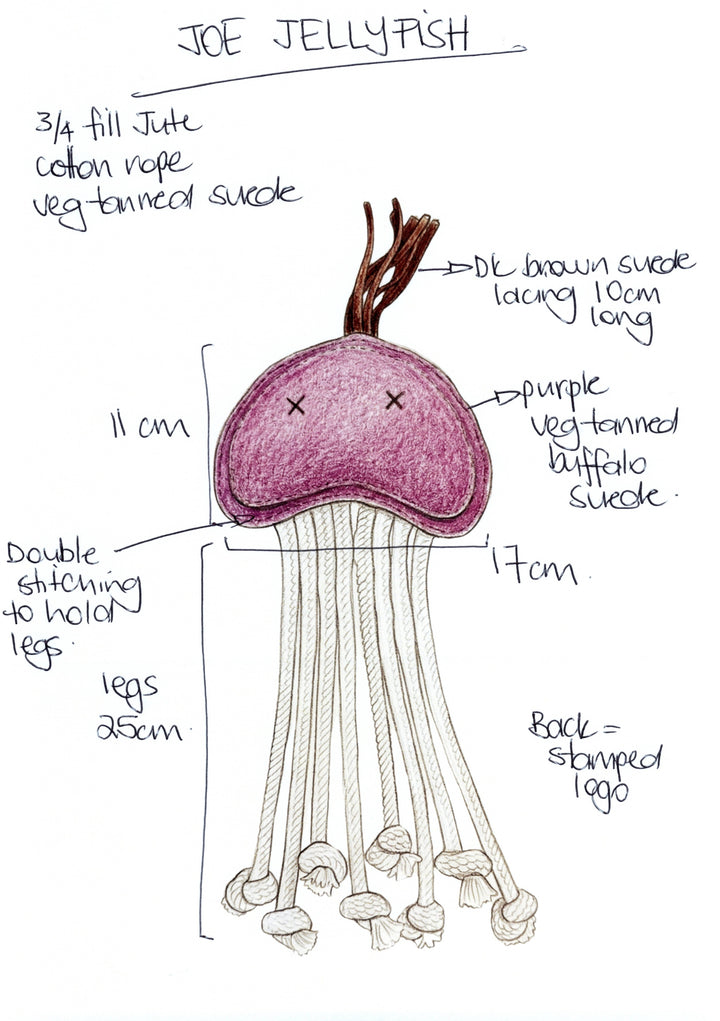 JOE JELLYFISH
3/4 fill Jute
cotton rope
veg-tanned suede
Dk brown suede
lacing 10cm
long
11 cm
purple
veg-tanned
buffalo
suede.
Double
stitching
to hold
legs.
17cm.
legs
25cm.
Back =
stamped
logo